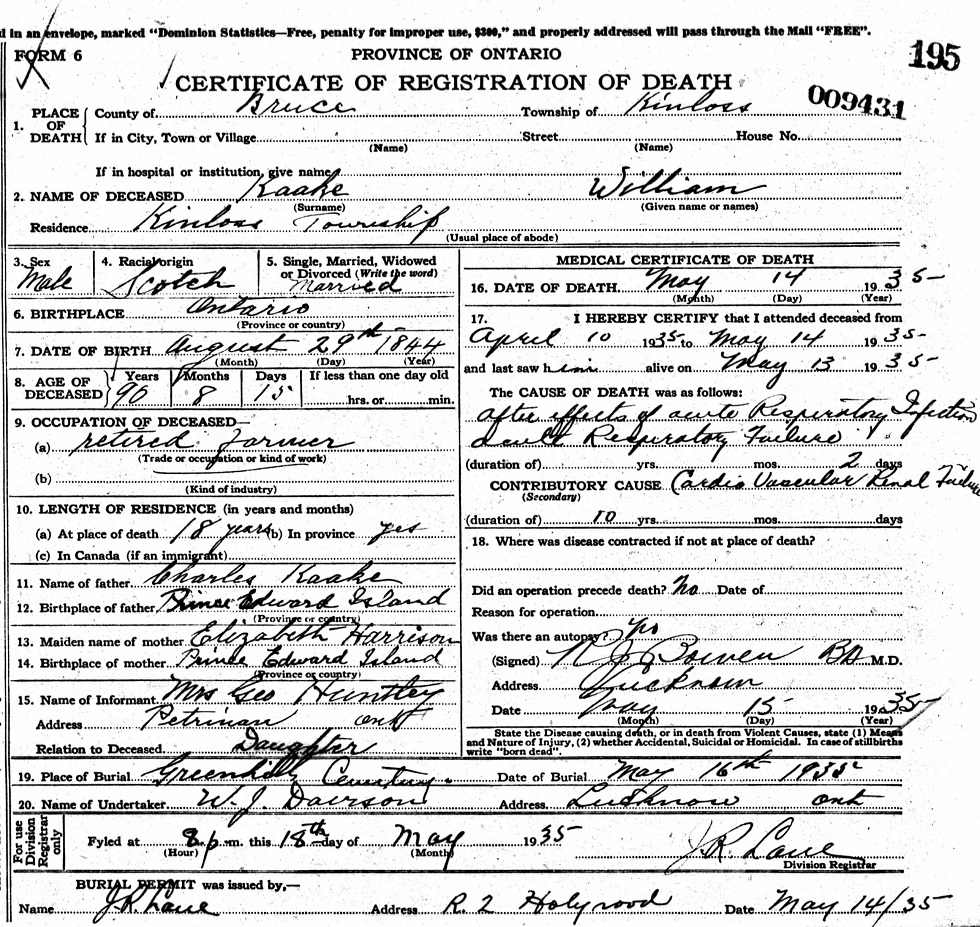 d in an envelope, marked "Dominion Statistics—Free, penalty for improper use, $300," and properly addressed will pass through the Mail "FREE".
FORM 6 PROVINCE OF ONTARIO 195
CERTIFICATE OF REGISTRATION OF DEATH
009431
1. PLACE OF DEATH County of Bruce Township of Kinloss
If in City, Town or Village (Name) Street (Name) House No.
If in hospital or institution, give name
2. NAME OF DECEASED Kaake (Surname) William (Given name or names)
Residence Kinloss Township (Usual place of abode)
3. Sex Male 4. Racial origin Scotch 5. Single, Married, Widowed or Divorced (Write the word) Married
6. BIRTHPLACE Ontario (Province or country)
7. DATE OF BIRTH August 29th 1844 (Month) (Day) (Year)
8. AGE OF DECEASED Years 90 Months 8 Days 15 If less than one day old hrs. or min.
9. OCCUPATION OF DECEASED—
(a) retired farmer
(Trade or occupation or kind of work)
(b)
(Kind of industry)
10. LENGTH OF RESIDENCE (in years and months)
(a) At place of death 18 years (b) In province yes
(c) In Canada (if an immigrant)
11. Name of father Charles Kaake
12. Birthplace of father Prince Edward Island
(Province or country)
13. Maiden name of mother Elizabeth Harrison
14. Birthplace of mother Prince Edward Island
(Province or country)
15. Name of Informant Mrs Geo Huntley
Address Ont
Relation to Deceased Daughter
MEDICAL CERTIFICATE OF DEATH
16. DATE OF DEATH May 14 1935
(Month) (Day) (Year)
17. I HEREBY CERTIFY that I attended deceased from
April 10 1935 to May 14 1935
and last saw him alive on May 13 1935
The CAUSE OF DEATH was as follows:
After effects of acute Respiratory Infection
acute Respiratory Failure
(duration of) yrs. mos. 2 days
CONTRIBUTORY CAUSE Cardio Vascular Renal Failure
(Secondary)
(duration of) 10 yrs. mos. days
18. Where was disease contracted if not at place of death?
Did an operation precede death? No Date of
Reason for operation
Was there an autopsy? no
(Signed) Bowen BA M.D.
Address Lucknow
Date May 15 1935
(Month) (Day) (Year)
State the Disease causing death, or in death from Violent Causes, state (1) Means
and Nature of Injury, (2) whether Accidental, Suicidal or Homicidal. In case of stillbirths
write "born dead".
19. Place of Burial Greenhill Cemetery Date of Burial May 16th 1935
20. Name of Undertaker W. J. Davison Address Lucknow Ont
For use Division Registrar only
Fyled at 8 p.m. this 18th day of May 1935 J.R. Lane
(Hour) (Month) Division Registrar
BURIAL PERMIT was issued by,—
Name J.R. Lane Address R. 2 Holyrood Date May 14/35